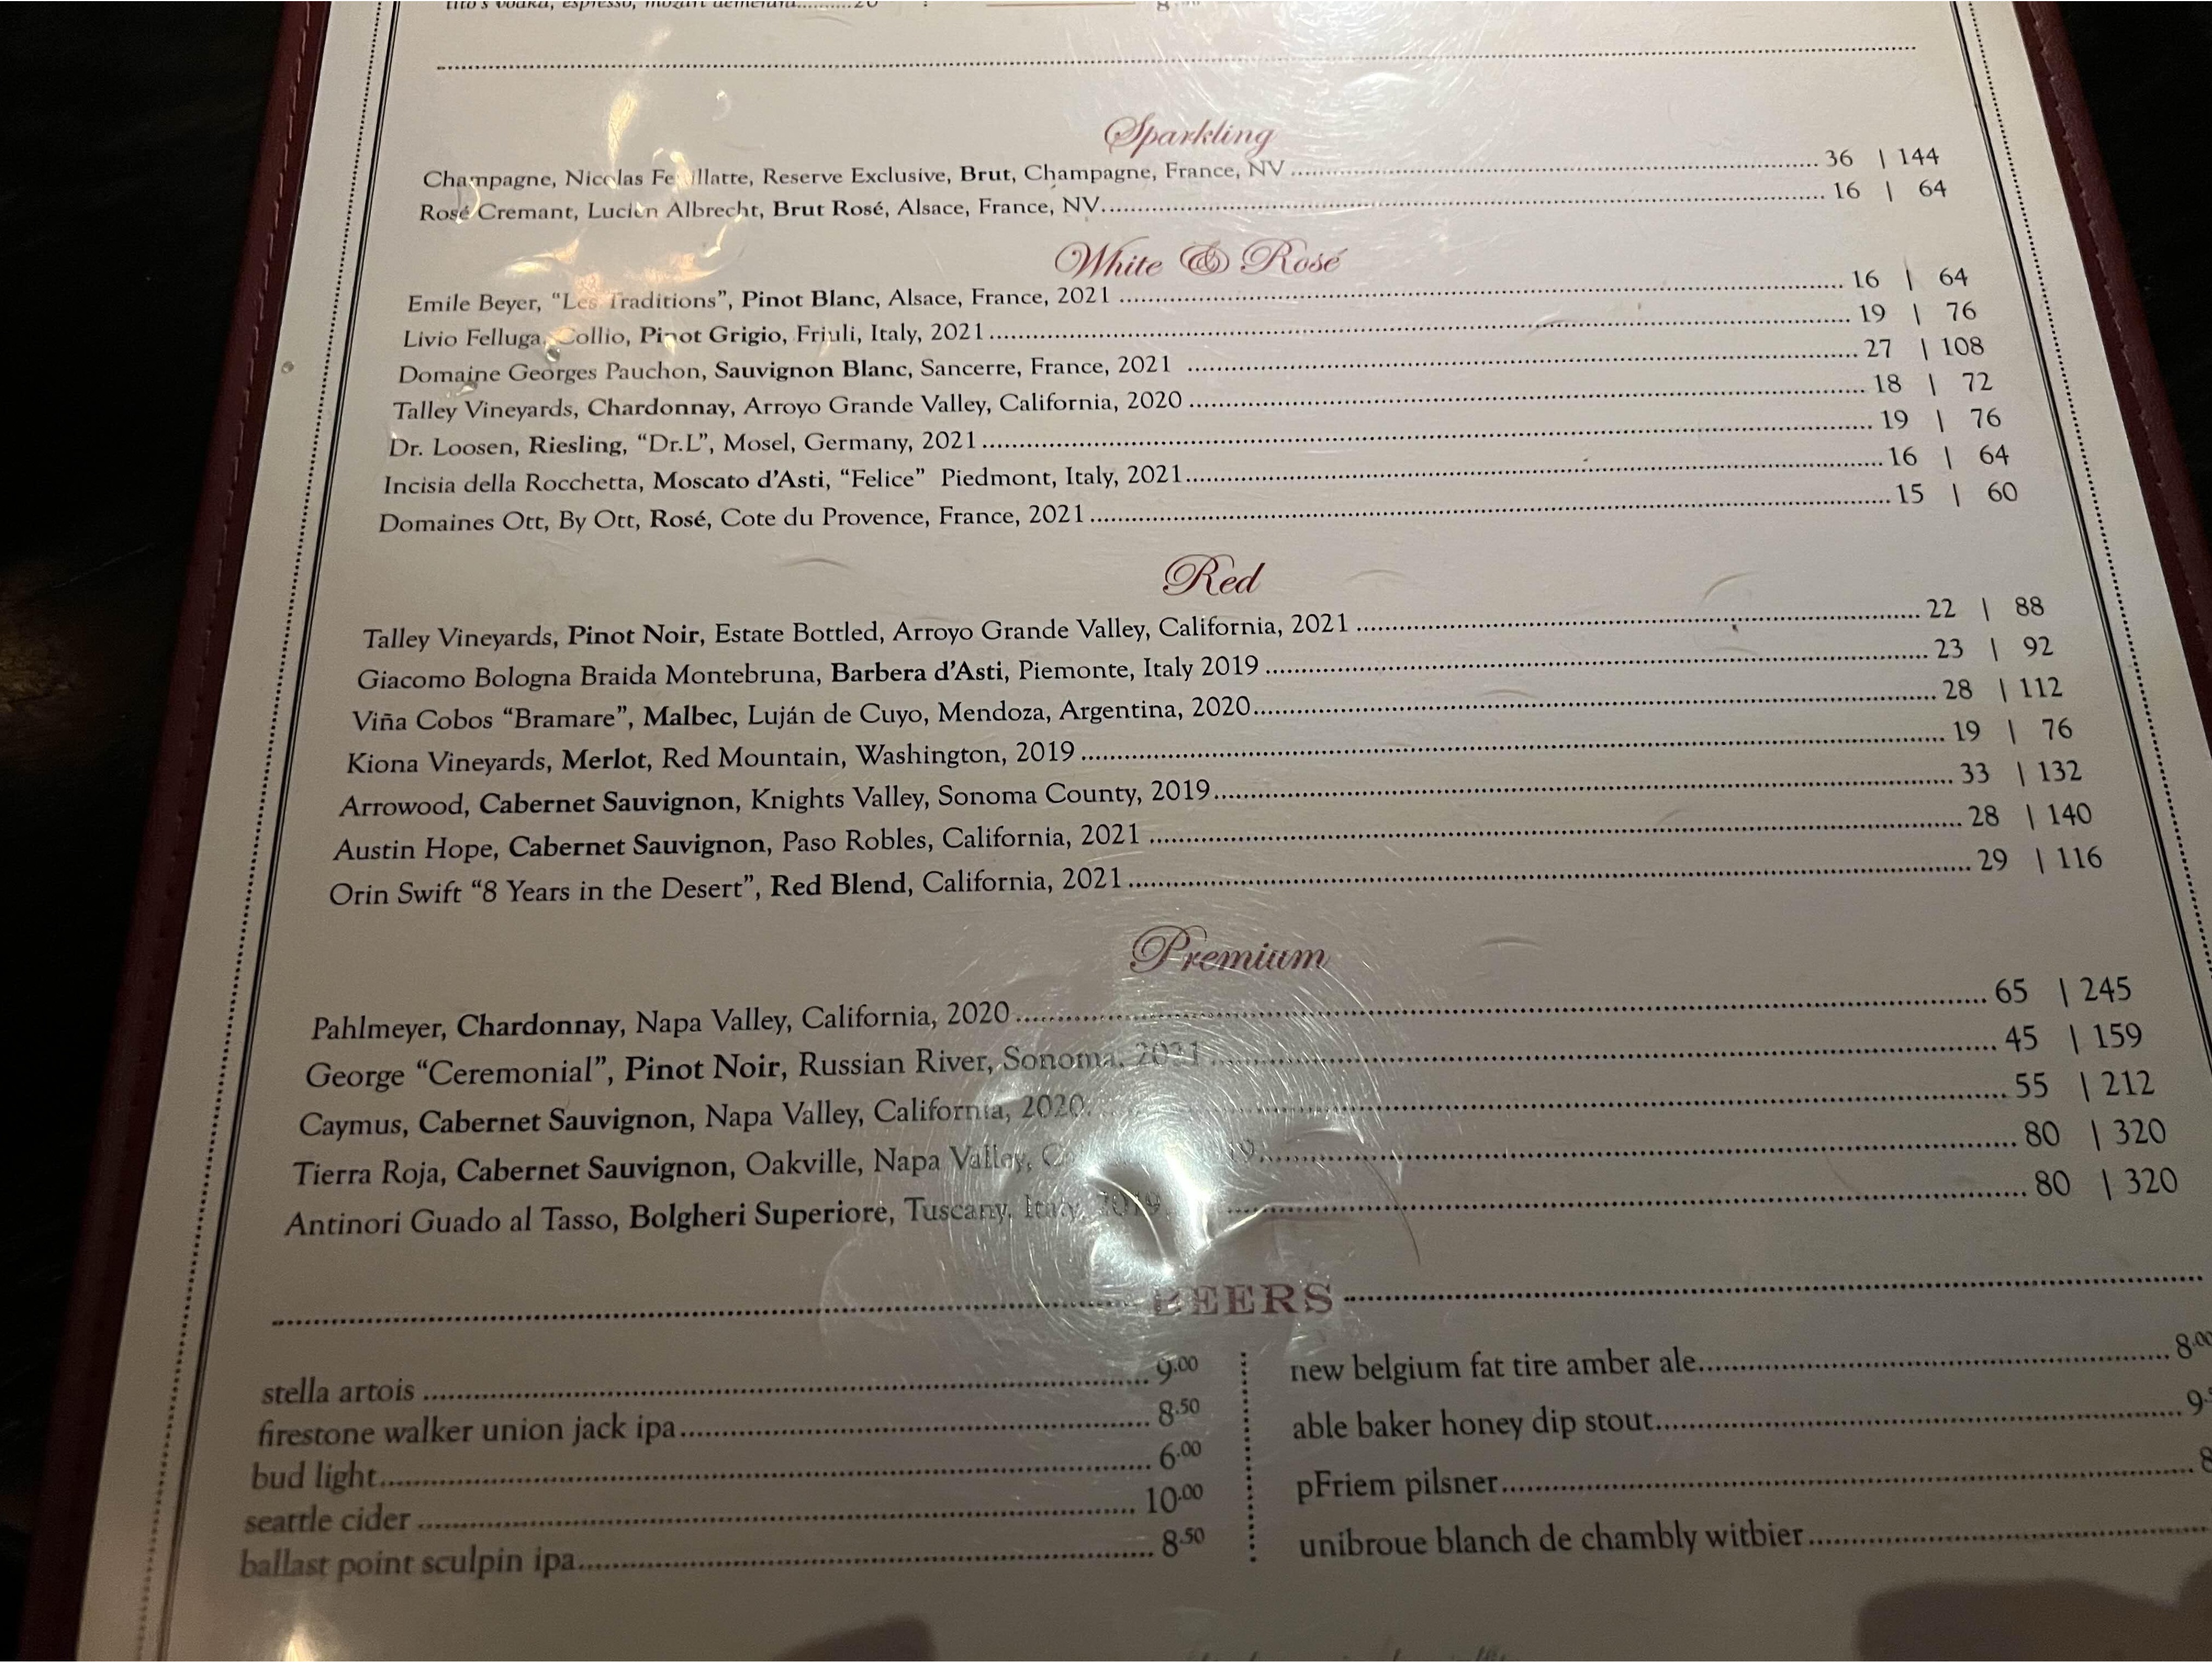 tito's vodka, espresso, mozart demerara..........20
Sparkling
Champagne, Nicolas Feuillatte, Reserve Exclusive, Brut, Champagne, France, NV ........ 36 | 144
Rosé Cremant, Lucien Albrecht, Brut Rosé, Alsace, France, NV........ 16 | 64
White & Rosé
Emile Beyer, “Les Traditions”, Pinot Blanc, Alsace, France, 2021 ........ 16 | 64
Livio Felluga, Collio, Pinot Grigio, Friuli, Italy, 2021 ........ 19 | 76
Domaine Georges Pauchon, Sauvignon Blanc, Sancerre, France, 2021 ........ 27 | 108
Talley Vineyards, Chardonnay, Arroyo Grande Valley, California, 2020 ........ 18 | 72
Dr. Loosen, Riesling, “Dr.L”, Mosel, Germany, 2021 ........ 19 | 76
Incisia della Rocchetta, Moscato d’Asti, “Felice” Piedmont, Italy, 2021........ 16 | 64
Domaines Ott, By Ott, Rosé, Cote du Provence, France, 2021 ........ 15 | 60
Red
Talley Vineyards, Pinot Noir, Estate Bottled, Arroyo Grande Valley, California, 2021 ........ 22 | 88
Giacomo Bologna Braida Montebruna, Barbera d’Asti, Piemonte, Italy 2019 ........ 23 | 92
Viña Cobos “Bramare”, Malbec, Luján de Cuyo, Mendoza, Argentina, 2020........ 28 | 112
Kiona Vineyards, Merlot, Red Mountain, Washington, 2019 ........ 19 | 76
Arrowood, Cabernet Sauvignon, Knights Valley, Sonoma County, 2019........ 33 | 132
Austin Hope, Cabernet Sauvignon, Paso Robles, California, 2021 ........ 28 | 140
Orin Swift “8 Years in the Desert”, Red Blend, California, 2021........ 29 | 116
Premium
Pahlmeyer, Chardonnay, Napa Valley, California, 2020 ........ 65 | 245
George “Ceremonial”, Pinot Noir, Russian River, Sonoma, 2021 ........ 45 | 159
Caymus, Cabernet Sauvignon, Napa Valley, California, 2020........ 55 | 212
Tierra Roja, Cabernet Sauvignon, Oakville, Napa Valley, ........ 80 | 320
Antinori Guado al Tasso, Bolgheri Superiore, Tuscany, Italy, 2019 ........ 80 | 320
BEERS
stella artois ........ 9.00
firestone walker union jack ipa........ 8.50
bud light........ 6.00
seattle cider ........ 10.00
ballast point sculpin ipa........ 8.50
new belgium fat tire amber ale........ 8.00
able baker honey dip stout........ 9.
pFriem pilsner........ 8
unibroue blanch de chambly witbier........